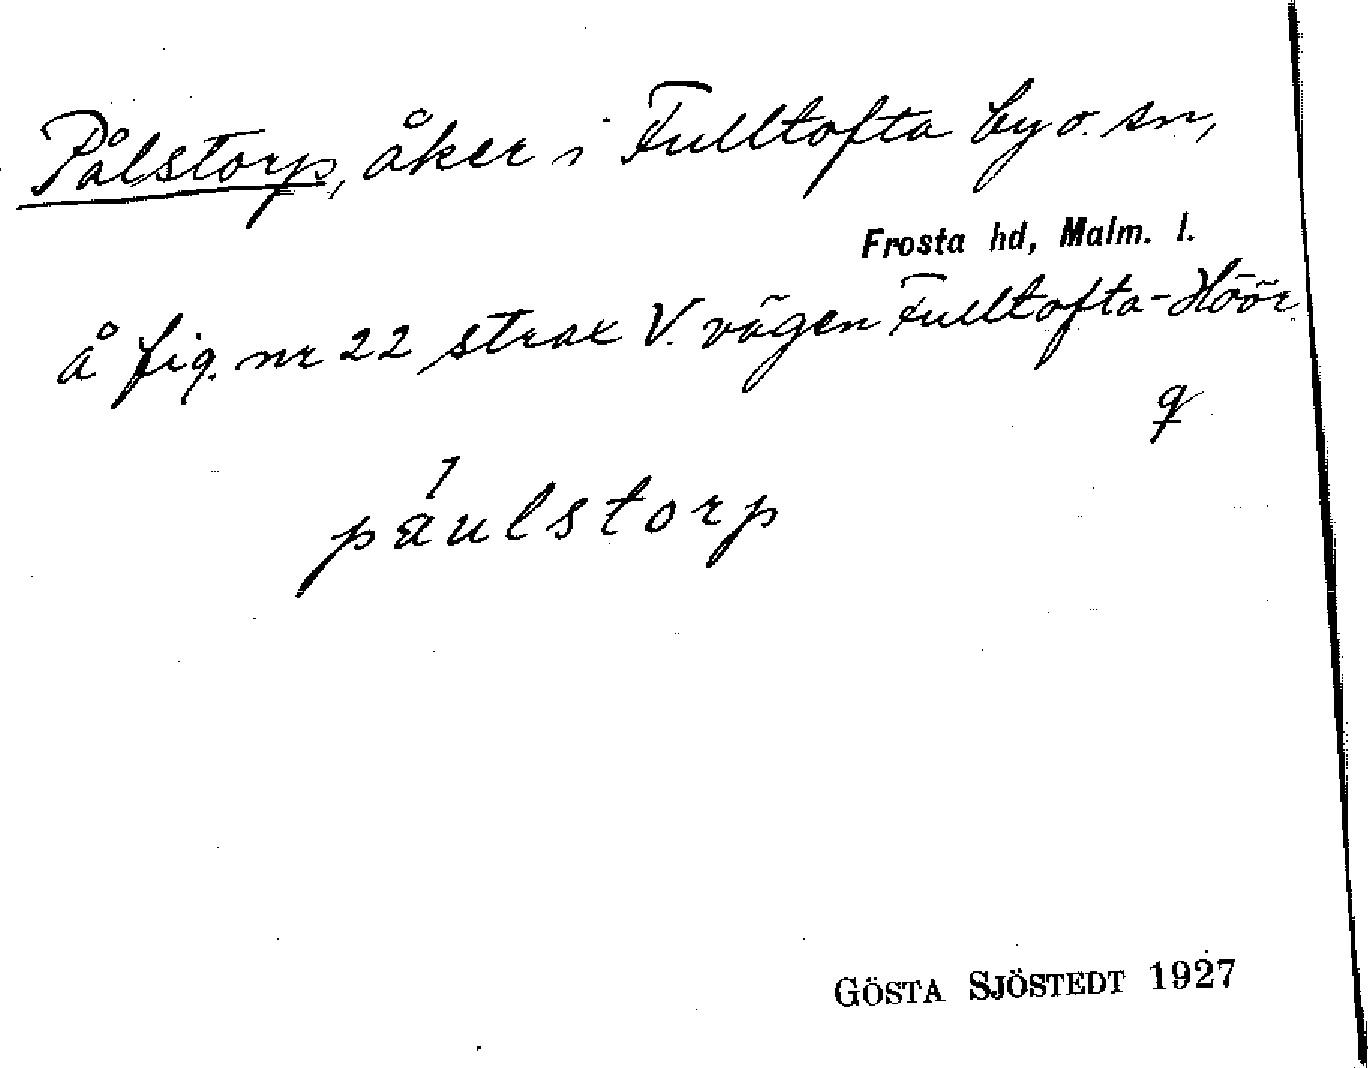 Pålstorp, åker i Fulltofta by o. sn,
Frosta hd, Malm. l.
å fig. nr 22 strax V. vägen Fulltofta-Höör.
q
páulstorp
GÖSTA SJÖSTEDT 1927